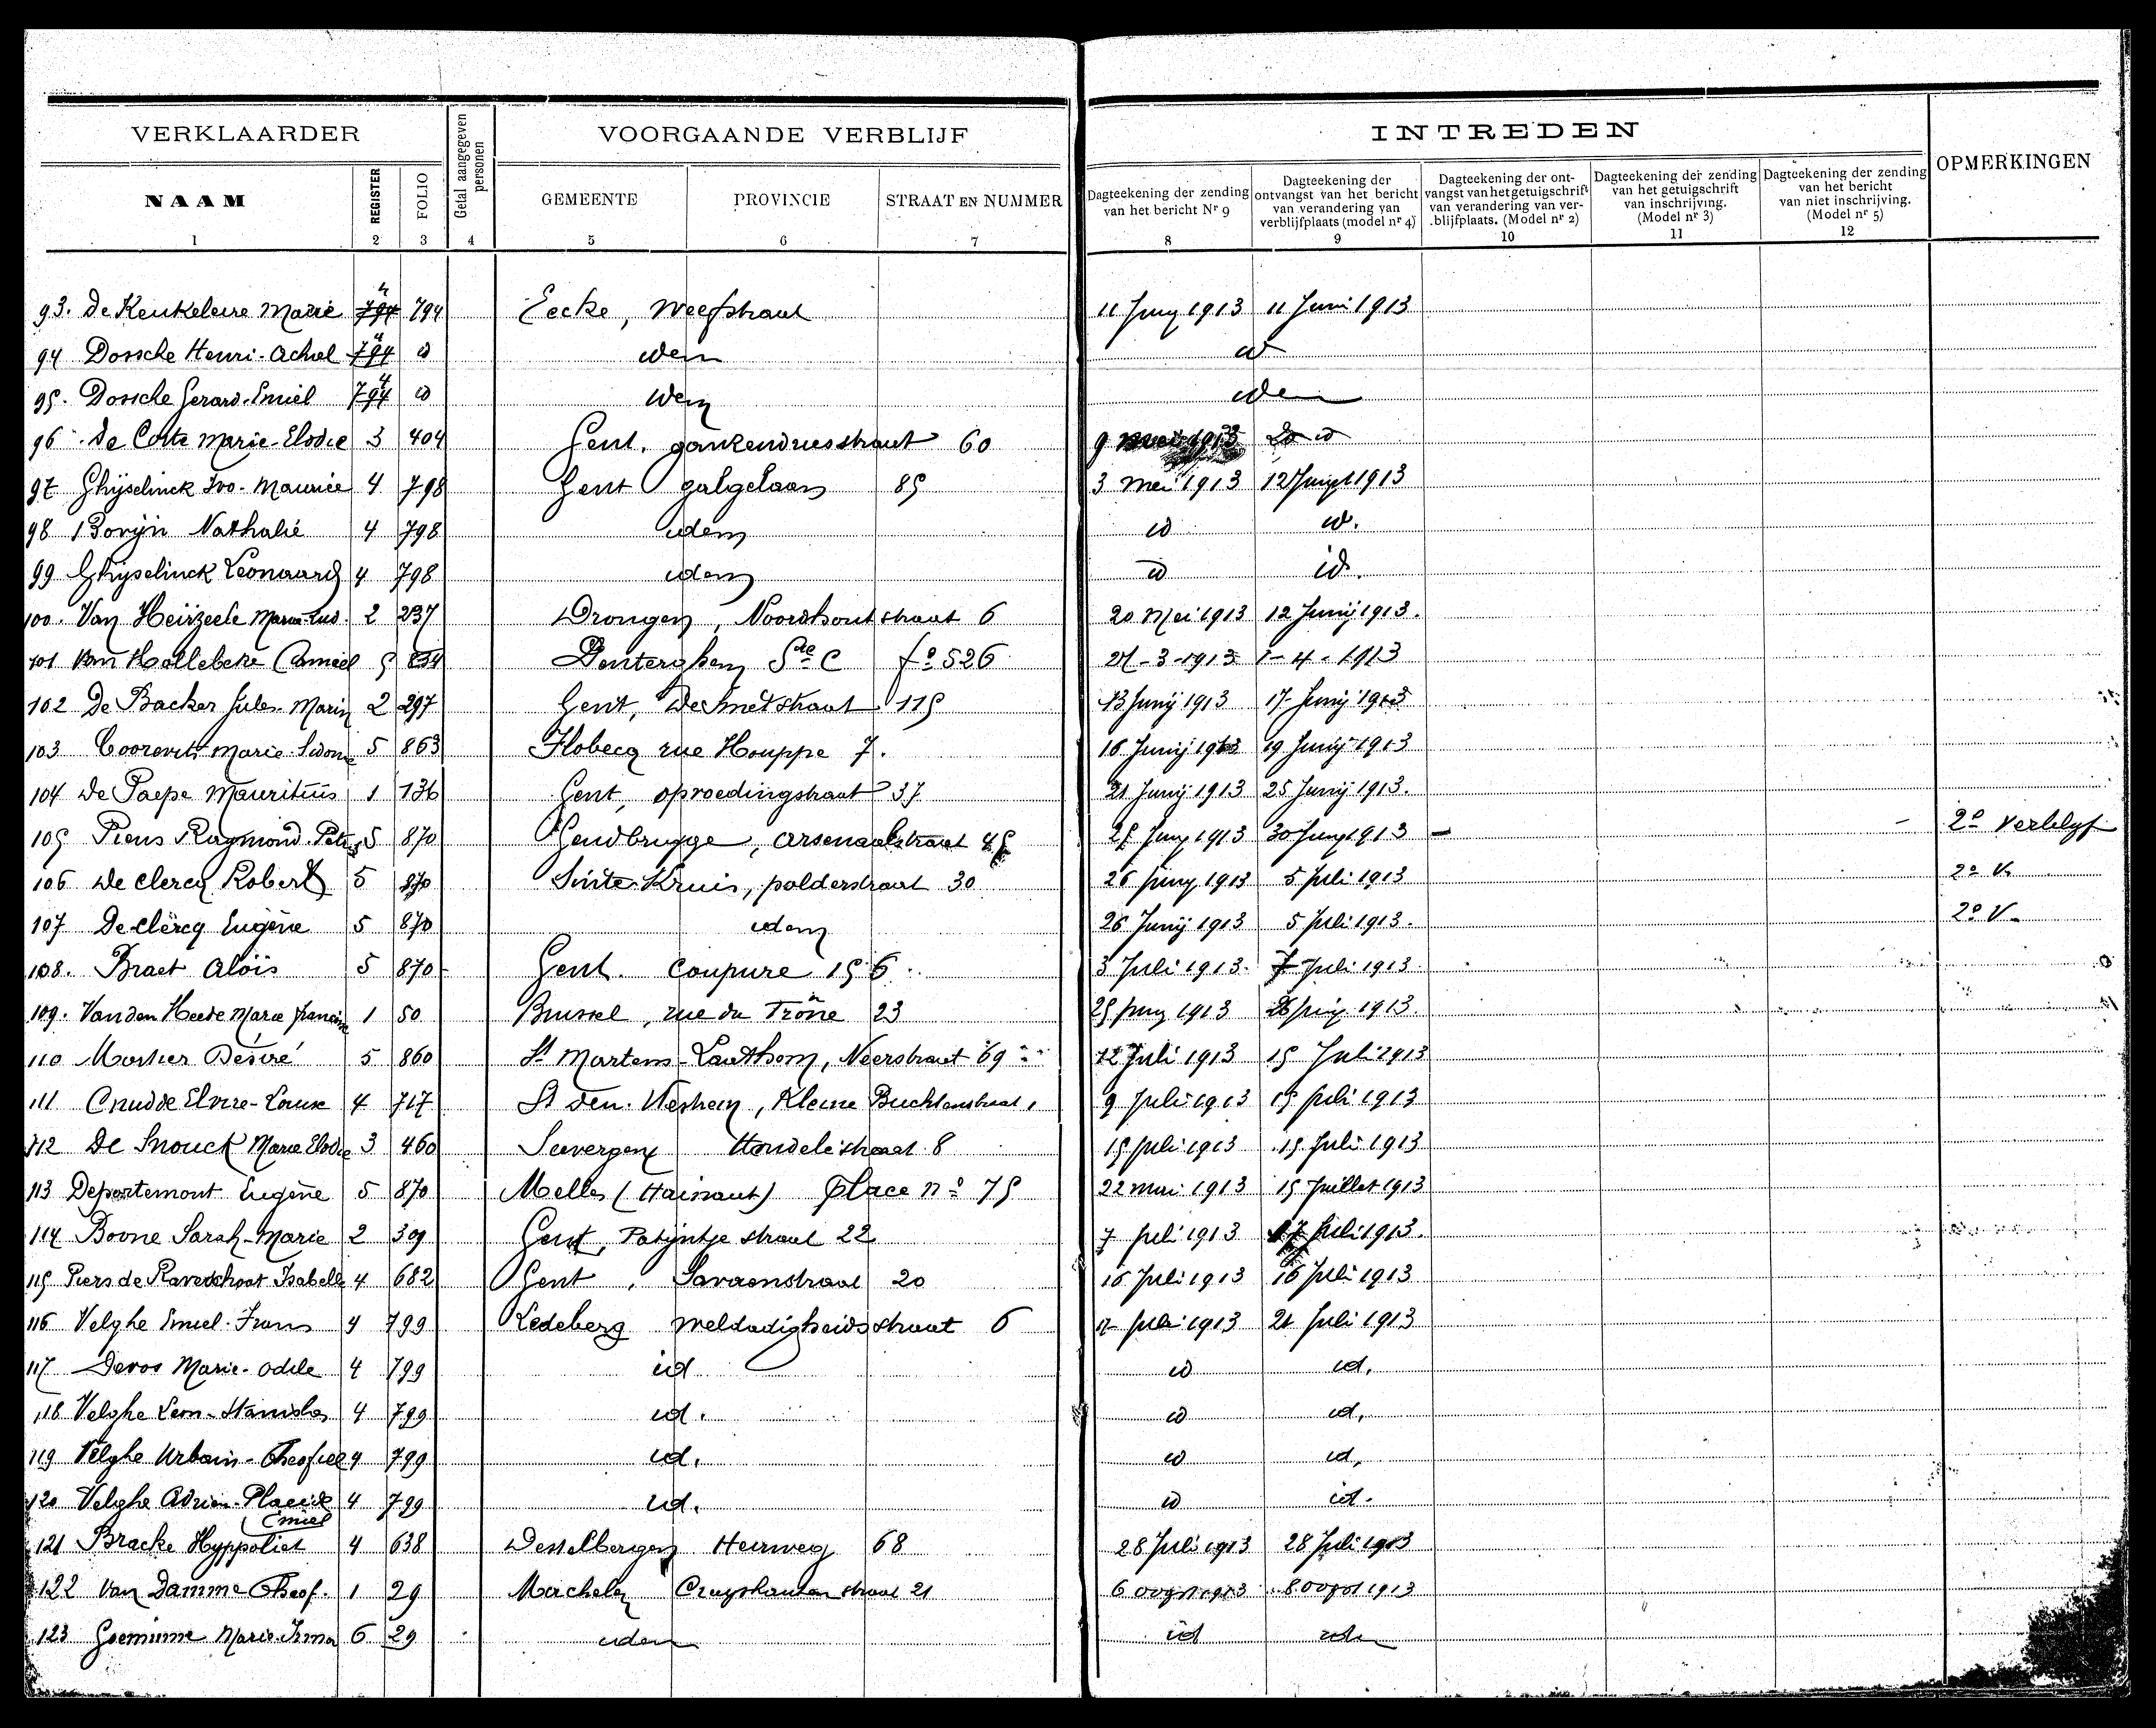 VERKLAARDER
Getal aangegeven personen
VOORGAANDE VERBLIJF
INTREDEN
OPMERKINGEN
NAAM REGISTER FOLIO GEMEENTE PROVINCIE STRAAT EN NUMMER
Dagteekening der zending van het bericht Nr 9
Dagteekening der ontvangst van het bericht van verandering van verblijfplaats (model nr 4)
Dagteekening der ontvangst van het getuigschrift van verandering van verblijfplaats. (Model nr 2)
Dagteekening der zending van het getuigschrift van inschrijving. (Model nr 3)
Dagteekening der zending van het bericht van niet inschrijving. (Model nr 5)
1 2 3 4 5 6 7 8 9 10 11 12
93. De Keukeleire Marie 4 794 794 Eecke, Weefstraat 11 Juny 1913 11 Juni 1913
94 Dossche Henri-Achiel 794 4 id idem id
95. Dossche Gerard-Emiel 794 4 id idem idem
96. De Corte Marie-Elodie 3 404 Gent. 60 9 1913 id
97 Ghijselinck Ivo-Maurice 4 798 Gent galgelaan 85 3 Mei 1913 12 Juny 1913
98 Borijn Nathalie 4 798 idem id id.
99 Ghijselinck Leonaard 4 798 idem id id.
100. Van Heirzeele Marie-Lud. 2 237 Drongen, Noordhoutstraat 6 20 Mei 1913 12 Junij 1913.
101 Van Hollebeke Camiel 5 834 Denterghem Sie C fo 526 27-3-1913 1-4-1913
102 De Backer Jules-Marin 2 297 Gent, De Smetstraat 115 13 Junij 1913 17 Junij 1913
103 Coorevits Marie-Sidonie 5 863 Flobecq rue Houppe 7. 16 Junij 1913 19 Junij 1913
104 De Paepe Mauritius 1 136 Gent, opvoedingstraat 37 21 Junij 1913 25 Junij 1913.
105 Piens Raymond-Petrus 5 870 Gendbrugge, Arsenaalstraat 45 25 Juny 1913 30 Juny 1913 2e verblyf
106 De Clercq Robert 5 870 Sinte-Kruis, polderstraat 30 26 Juny 1913 5 Juli 1913 2e V.
107 De Clercq Eugène 5 870 idem 26 Junij 1913 5 Juli 1913. 2e V.
108. Braet Aloïs 5 870 Gent. Coupure 156. 3 Juli 1913. 7 Juli 1913.
109. Van den Heede Marie 1 50 Brussel, rue du Trône 23 25 Juny 1913 26 Juny 1913.
110 Mortier Desiré 5 860 St Martens-Laethem, Neerstraat 69 12 Juli 1913 15 Juli 1913
111 Cnudde Elvire-Louise 4 717 St Den. Westrem, Kleine Buchtenstraat, 9 Juli 1913 15 Juli 1913
112 De Snouck Marie Elodie 3 460 Seevergem Hondelestraat 8 15 Juli 1913 15 Juli 1913
113 Depertemont Eugène 5 870 Melles (Hainaut) Place no 75 22 mai 1913 15 Juillet 1913
114 Boone Sarah-Marie 2 309 Gent, Patijntje straat 22 7 Juli 1913 17 Juli 1913.
115 Piers de Raveschoot Isabelle 4 682 Gent, Savaenstraat 20 16 Juli 1913 16 Juli 1913
116 Velghe Emiel-Frans 4 799 Ledeberg Weldadigheidsstraat 6 Juli 1913 21 Juli 1913
117 Devos Marie-Odile 4 799 id id id.
118 Velghe Leon-Stanislas 4 799 id. id id.
119 Velghe Urbain-Theofiel 4 799 id. id id.
120 Velghe Adrien-Placide 4 799 id. id id.
Emiel
121 Bracke Hyppoliet 4 638 Desselbergen Heirweg 68 28 Juli 1913 28 Juli 1913
122 Van Damme Theof. 1 29 Machelen Cruyskauter straat 21 6 oogst 1913 8 oogst 1913
123 Goeminne Marie-Irma 6 29 idem id idem